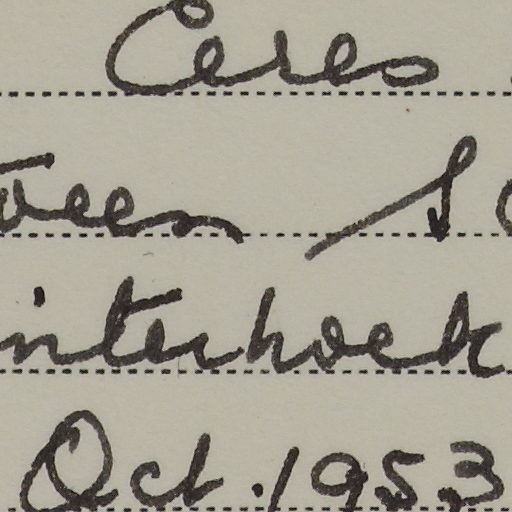 Ceres
tween S
interhoek
Oct. 1953